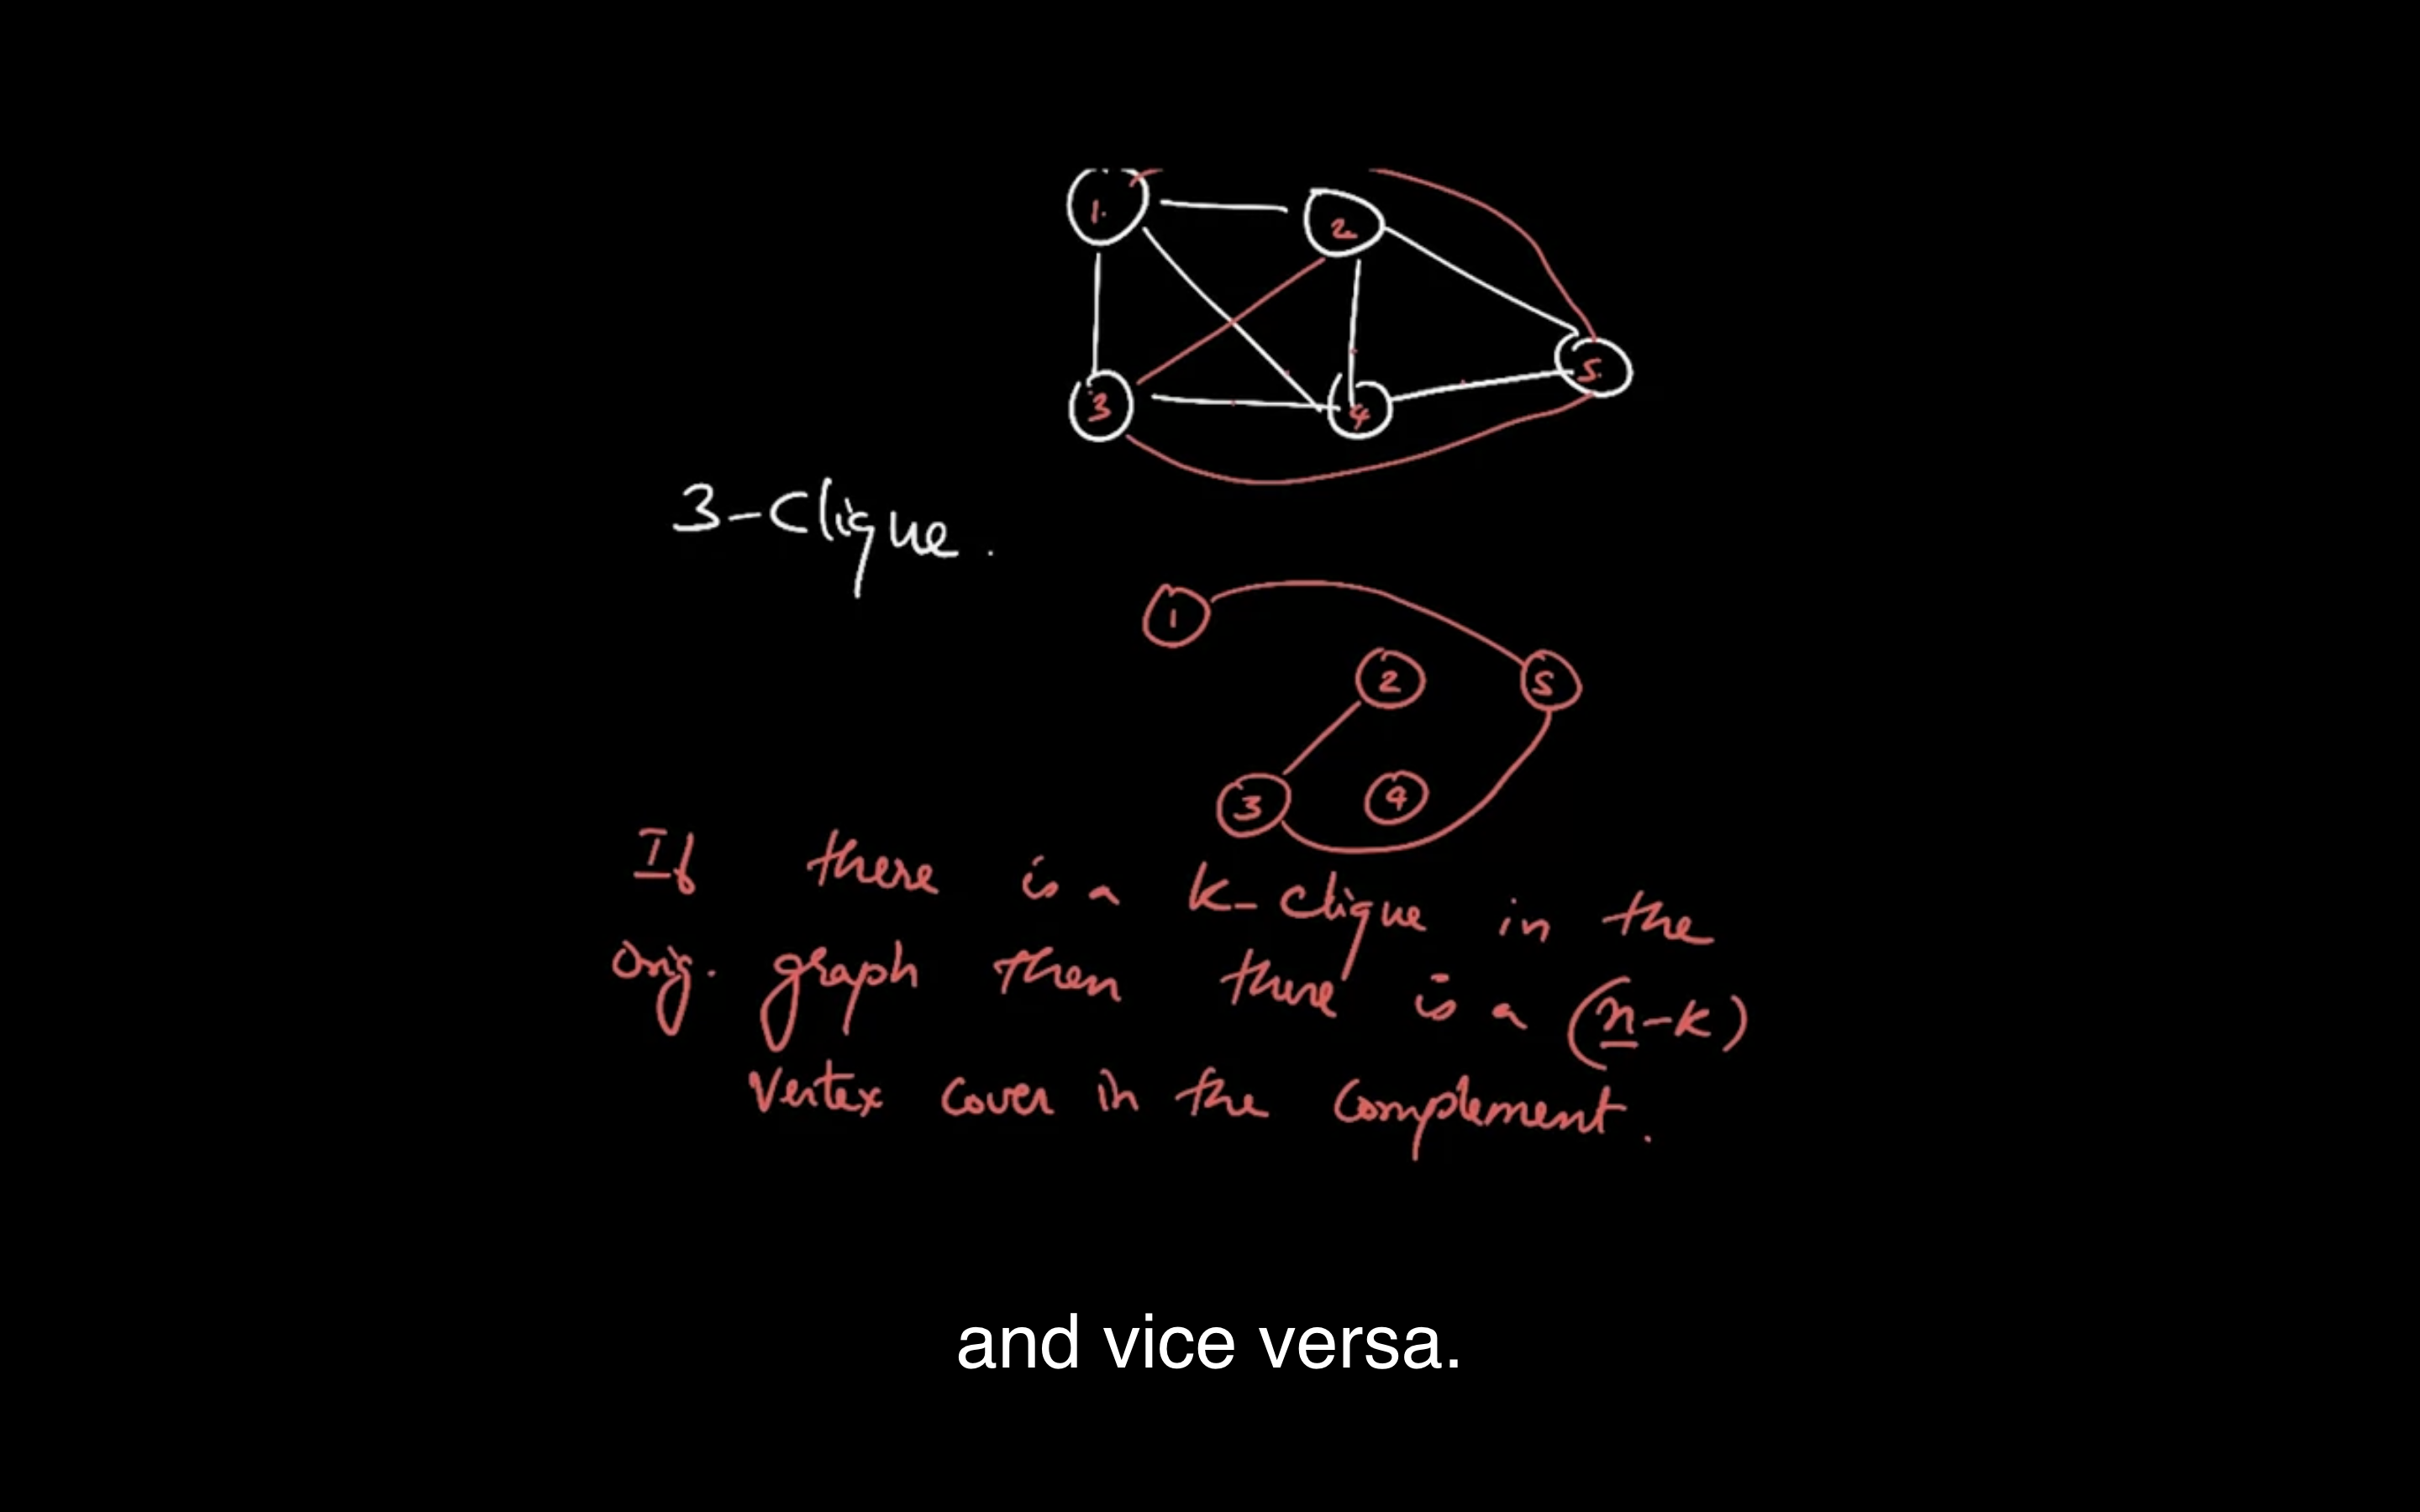 1. 2
5.
3 4
3-Clique.
1
2 5
3 4
If there is a k-clique in the
Orig. graph then there is a (n-k)
Vertex Cover in the Complement.
and vice versa.